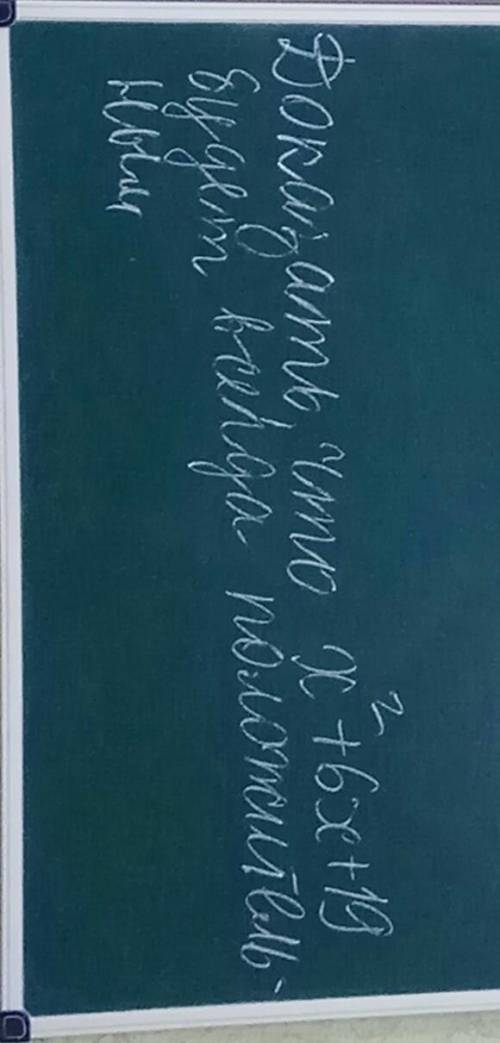 Доказать что x²+6x+19
будет всегда положитель-
ным